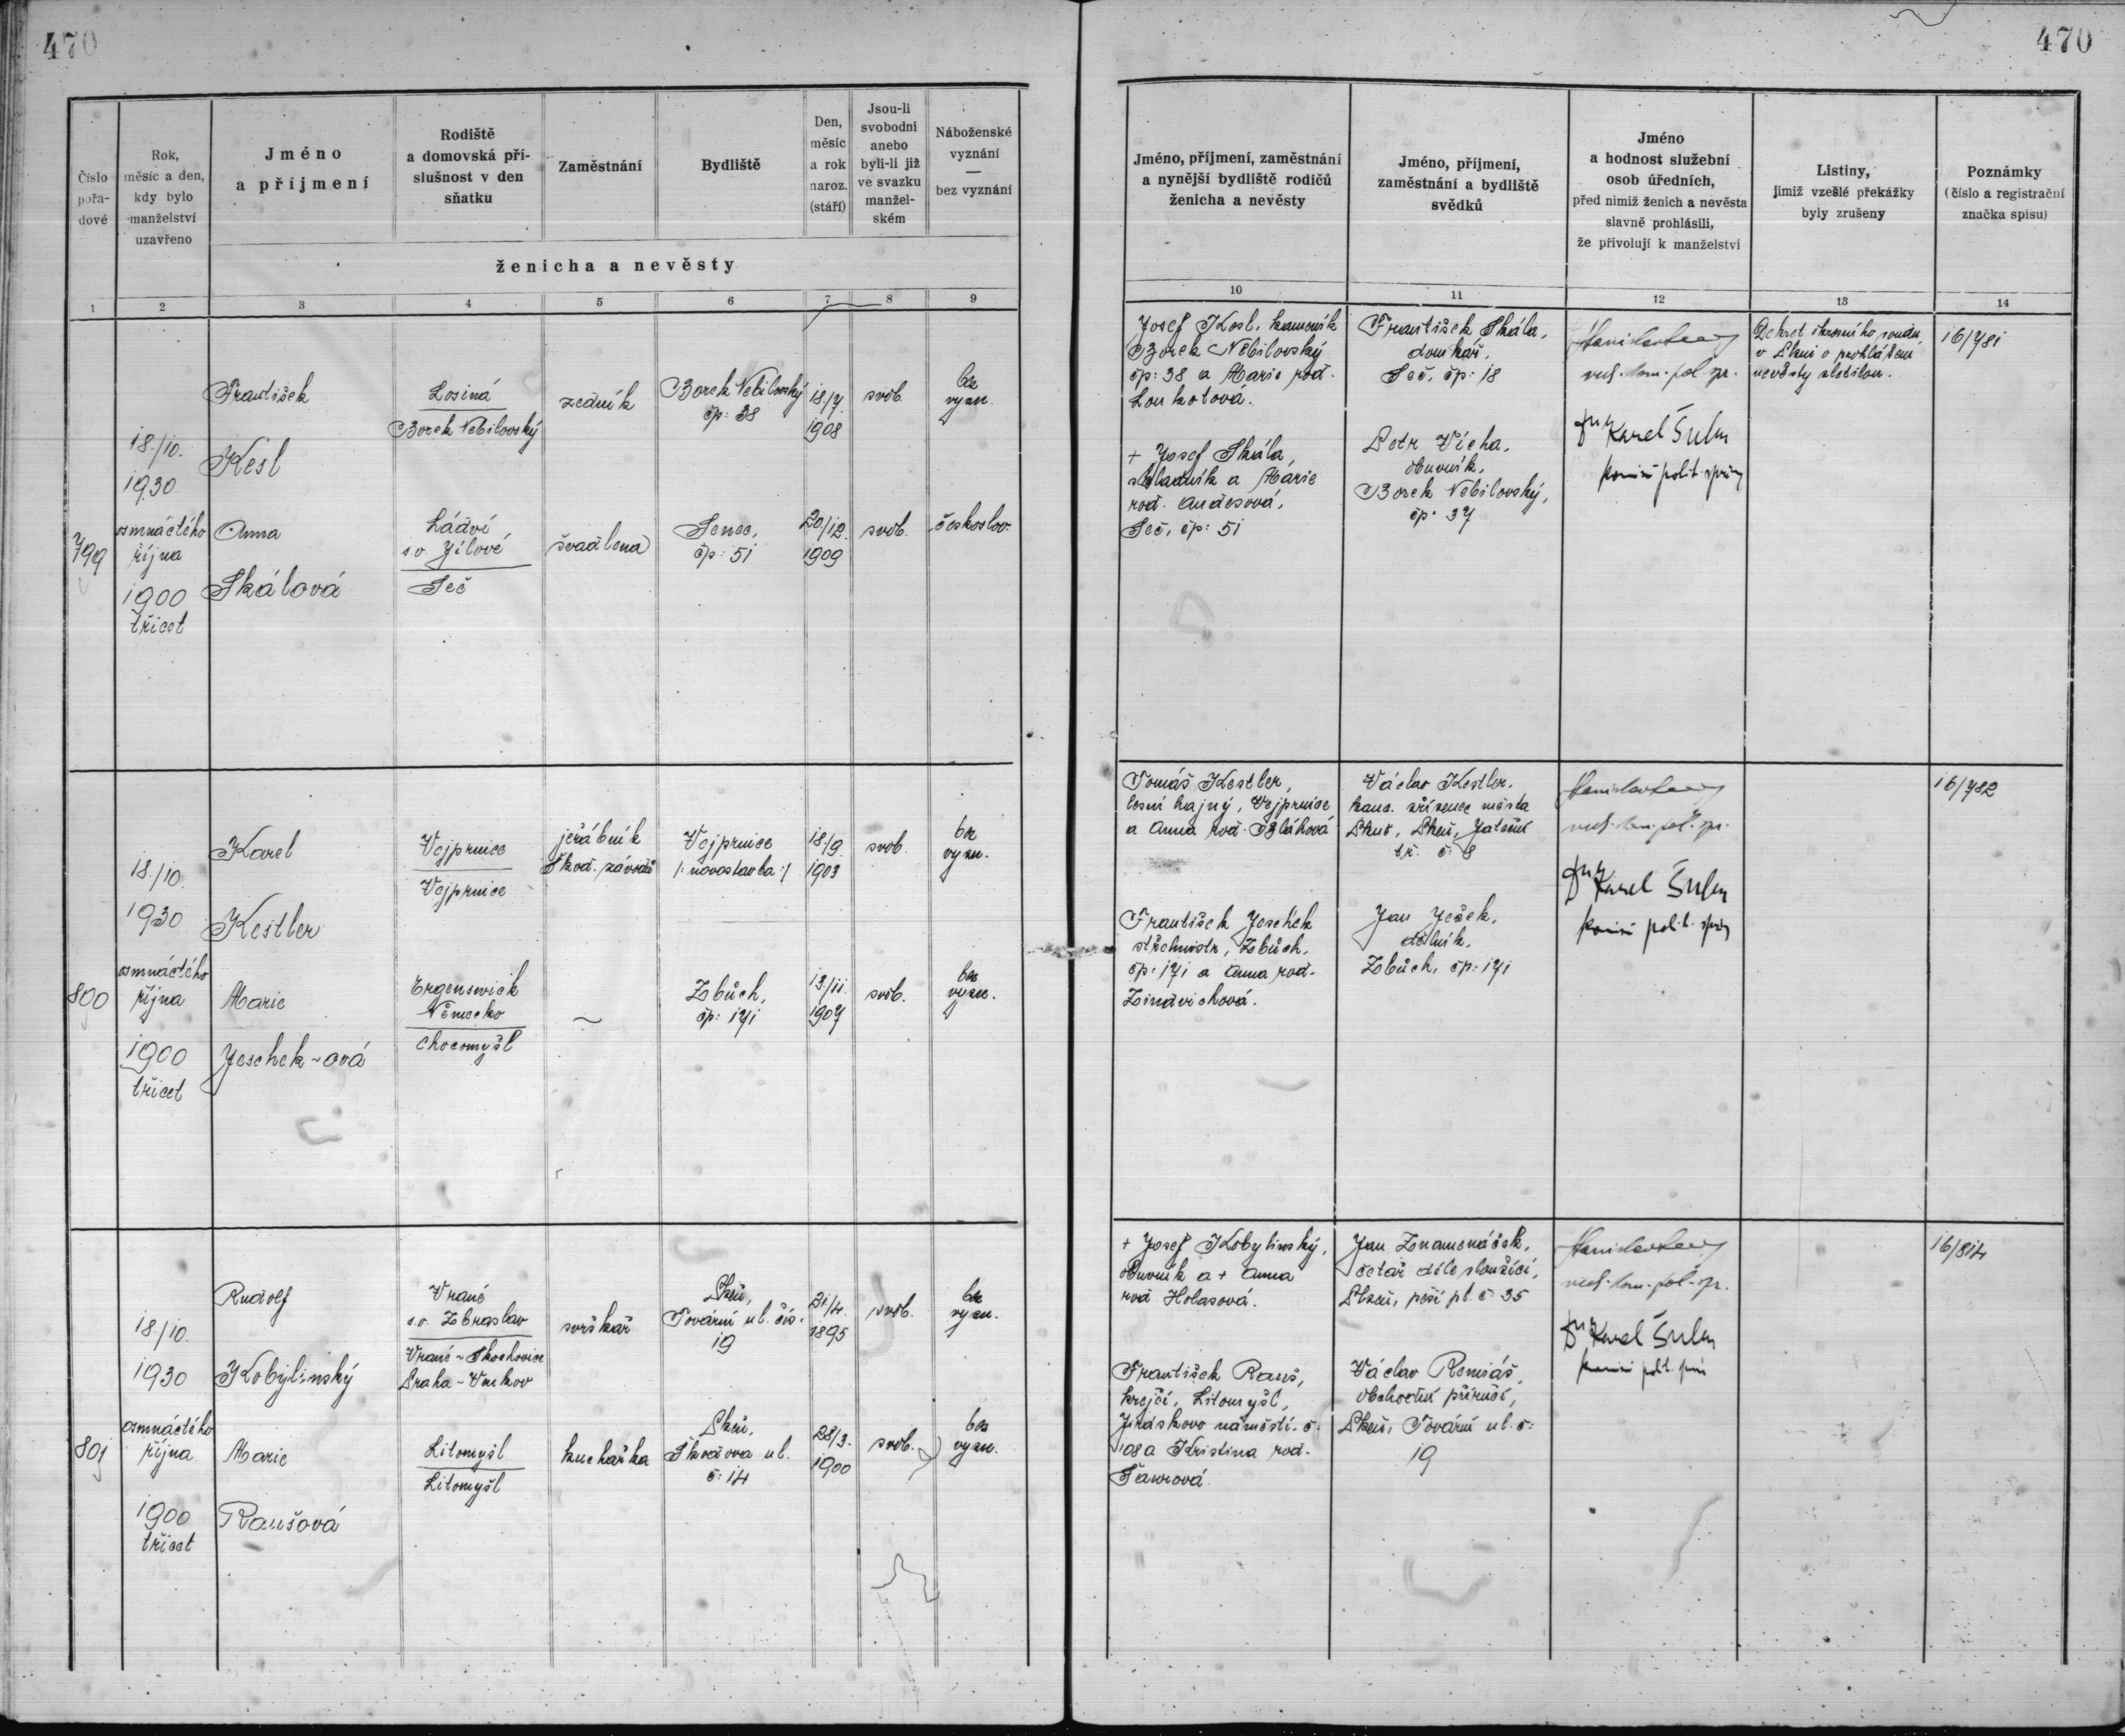 470
470
Číslo pořadové
Rok, měsíc a den, kdy bylo manželství uzavřeno
Jméno a příjmení
Rodiště a domovská příslušnost v den sňatku
Zaměstnání
Bydliště
Den, měsíc a rok naroz. (stáří)
Jsou-li svobodni anebo byli-li již ve svazku manželském
Náboženské vyznání — bez vyznání
ženicha a nevěsty
Jméno, příjmení, zaměstnání a nynější bydliště rodičů ženicha a nevěsty
Jméno, příjmení, zaměstnání a bydliště svědků
Jméno a hodnost služební osob úředních, před nimiž ženich a nevěsta slavně prohlásili, že přivolují k manželství
Listiny, jimiž vzešlé překážky byly zrušeny
Poznámky (číslo a registrační značka spisu)
1 2 3 4 5 6 7 8 9 10 11 12 13 14
799
18./10.
1930
osmnáctého
října
1900
třicet
František
Kesl
Losiná
Borek Nebilovský
zedník
Borek Nebilovský
čp: 38
18./7.
1908
svob.
bez
vyzn.
Anna
Skálová
Ládví
s.o. Jílové
Seč
švadlena
Senec,
čp: 51
20/12.
1909
svob.
českoslov.
Josef Kesl, kameník
Borek Nebilovský
čp: 38 a Marie roz.
Loukotová.
+ Josef Skála,
skladník a Marie
roz. Andesová,
Seč, čp: 51
František Skála,
domkář,
Seč, čp: 18
Petr Vícha,
obuvník,
Borek Nebilovský,
čp: 37
Karel Šulc
komisař polit. správy
v Plzni o prohlášení
nevěsty zletilou.
16/781
800
18./10.
1930
osmnáctého
října
1900
třicet
Karel
Kestler
Vejprnice
Vejprnice
jeřábník
Škod. závodů
Vejprnice
/: novostavba :/
18/9.
1903
svob.
bez
vyzn.
Marie
Jeschek~ová
Ergenswick
Německo
Chocomyšl
~
Zbůch,
čp: 171
13/11.
1907
svob.
bez
vyzn.
Tomáš Kestler,
lesní hajný, Vejprnice
a Anna roz. Bláhová
František Jeschek
střelmistr, Zbůch,
čp: 171 a Anna roz.
Zindrichová.
Václav Kestler,
kanc. zřízenec města
Plzně, Plzeň, Jateční
tř. č: 8
Jan Ježek,
dělník,
Zbůch, čp: 171
Karel Šulc
komisař polit. správy
16/782
801
18./10.
1930
osmnáctého
října
1900
třicet
Rudolf
Kobylinský
Vrané
s.o. Zbraslav
Vrané~Skochovice
Praha~
svrškař
Plzeň,
Tovární ul. čís:
19
21/4.
1895
svob.
bez
vyzn.
Marie
Raušová
Litomyšl
Litomyšl
kuchařka
Plzeň,
Škodova ul.
č: 14
28/3.
1900
svob.
bez
vyzn.
+ Josef Kobylinský,
obuvník a + Anna
roz. Holasová.
František Rauš,
krejčí, Litomyšl,
Jiráskovo náměstí č:
108 a Kristina roz.
Šaurová.
Jan Znamenáček,
četař déle sloužící,
Plzeň, pěší pl. č: 35
Václav Remiáš,
obchodní příručí,
Plzeň, Tovární ul. č:
19
Karel Šulc
komisař polit. správy
16/814